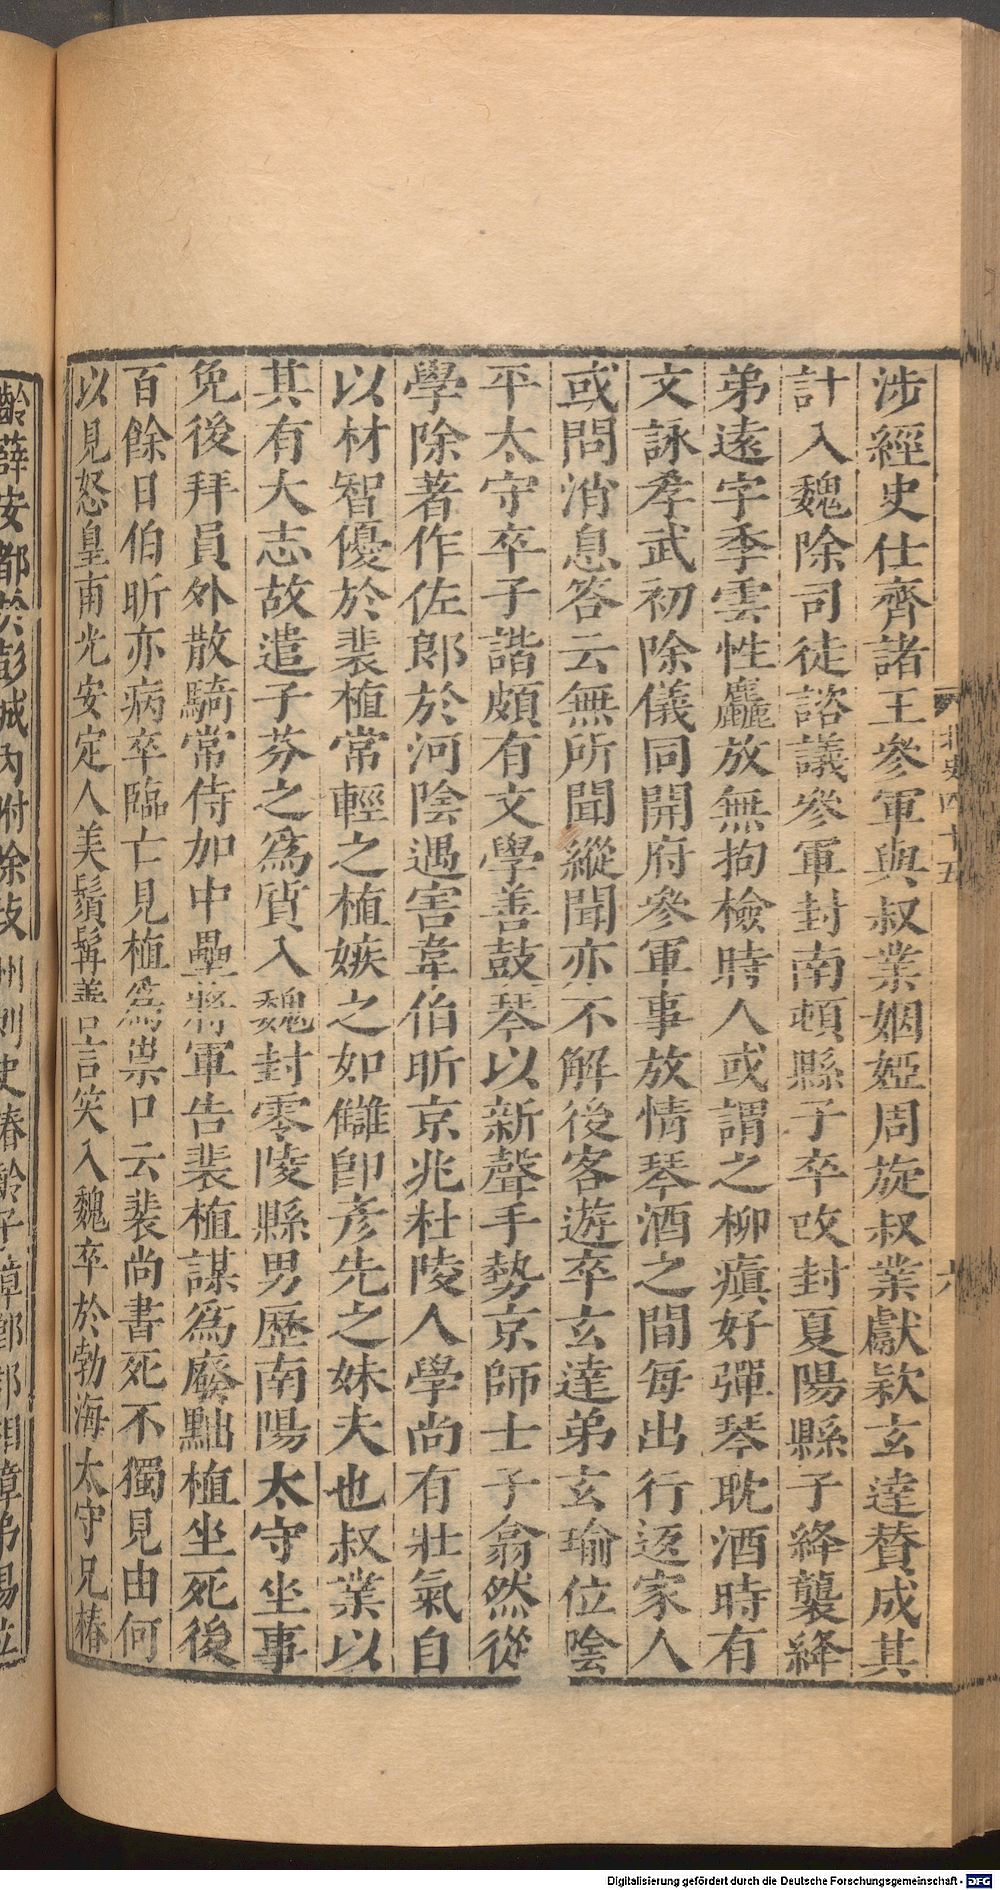 涉經史仕齊諸王參軍與叔業姻婭周旋叔業獻款玄達贊成其
計入魏除司徒諮議參軍封南頓縣子卒改封夏陽縣子絳襲絳
弟遠字季雲性麤放無拘檢時人或謂之柳癲好彈琴耽酒時有
文詠孝武初除儀同開府參軍事放情琴酒之間每出行返家人
或問消息答云無所聞縱聞亦不解後客遊卒玄達弟玄瑜位陰
平太守卒子諧頗有文學善鼓琴以新聲手勢京師士子翕然從
學除著作佐郎於河陰遇害韋伯昕京兆杜陵人學尚有壯氣自
以材智優於裴植常輕之植嫉之如讎即彥先之妹夫也叔業以
其有大志故遣子芬之為質入魏封零陵縣男歷南陽太守坐事
免後拜員外散騎常侍加中壘將軍告裴植謀為廢黜植坐死後
百餘日伯昕亦病卒臨亡見植為祟口云裴尚書死不獨見由何
以見怒皇甫光安定人美鬚髯善言笑入魏卒於勃海太守兄椿
齡薛安都於彭城內附除岐州刺史椿齡子璋鄉郡相璋弟瑒位
北史四十五
六
Digitalisierung gefördert durch die Deutsche Forschungsgemeinschaft - DFG